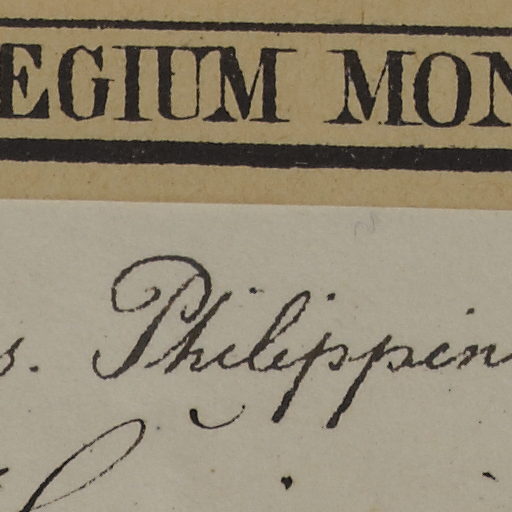 EGIUM MON
s. Philippin